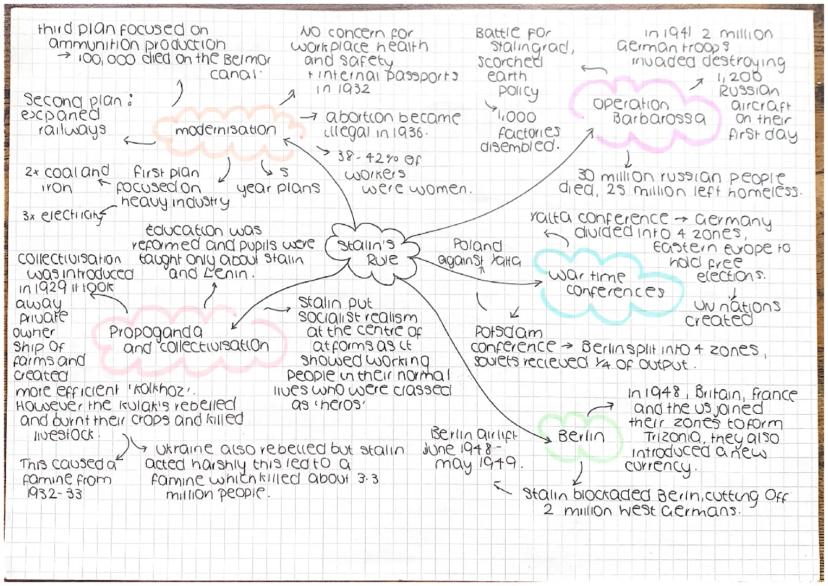 third plan focused on
ammunition production
→ 100,000 died on the Belmor
canal.
Second plan:
expanded
railways
modernisation
2x coal and
iron
3x electricity
first plan
focused on
heavy industry
5
year plans
NO concern for
workplace health
and safety
+ internal passports
in 1932
→ abortion became
illegal in 1936.
→ 38-42% of
workers
were women.
Battle for
Stalingrad,
scorched
earth
policy
1,000
factories
disembled.
in 1941 2 million
German troops
invaded destroying
1,200
Russian
aircraft
on their
first day
Operation
Barbarossa
30 million russian people
died, 25 million left homeless.
Stalin's
Rule
Poland
against Yalta
Yalta conference → Germany
divided into 4 zones,
Eastern Europe to
hold free
elections.
UN nations
created
War time
conferences
Potsdam
conference → Berlin split into 4 zones,
soviets recieved 1/4 of output.
Education was
reformed and pupils were
taught only about Stalin
and Lenin.
Collectivisation
was introduced
in 1929 it took
away
private
owner
ship of
farms and
created
more efficient 'kolkhoz'.
However the kulak's rebelled
and burnt their crops and killed
livestock.
Propoganda
and collectivisation
→ Stalin put
socialist realism
at the centre of
artforms as it
showed working
people in their normal
lives who were classed
as 'heros'
This caused a
famine from
1932-33
→ Ukraine also rebelled but Stalin
acted harshly this led to a
famine which killed about 3.3
million people.
Berlin
in 1948, Britain, france
and the us joined
their zones to form
Trizonia, they also
introduced a new
currency.
Berlin airlift
June 1948-
may 1949.
Stalin blockaded Berlin, cutting off
2 million west Germans.